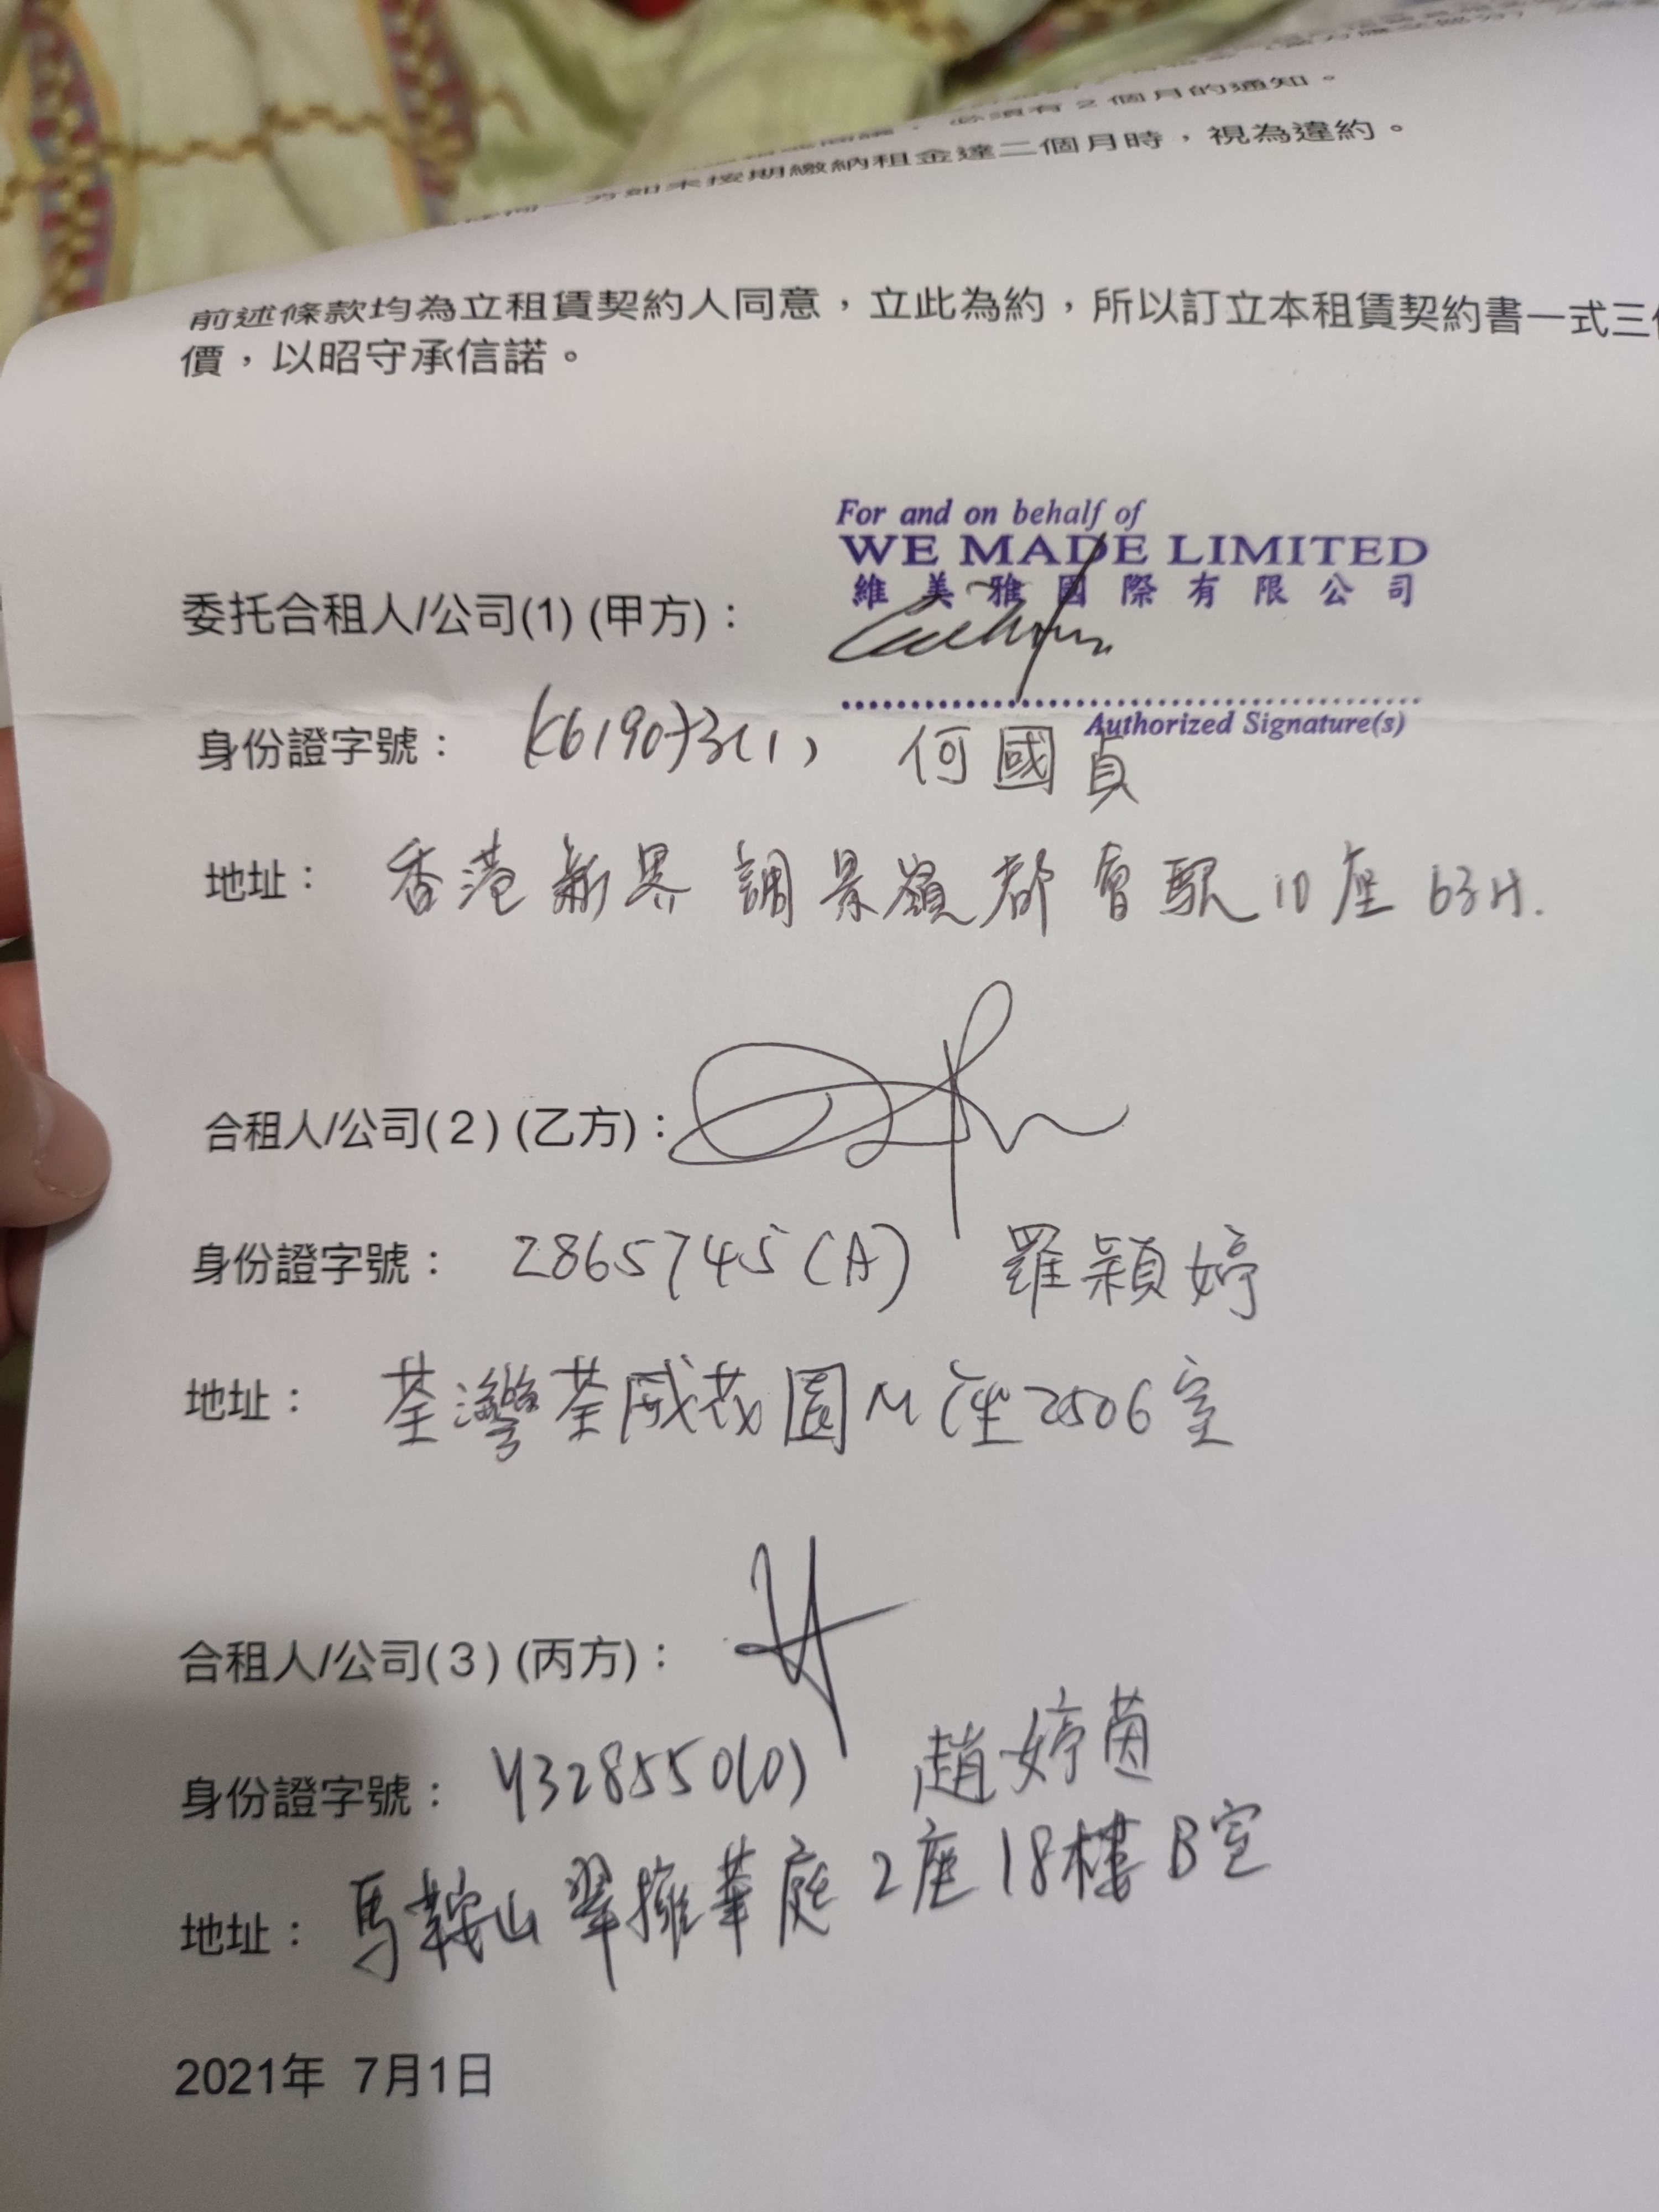 必須有 2 個月的通知。
期繳納租金達二個月時，視為違約。
前述條款均為立租賃契約人同意，立此為約，所以訂立本租賃契約書一式三
價，以昭守承信諾。
For and on behalf of
WE MADE LIMITED
維美雅國際有限公司
委托合租人/公司(1) (甲方)：
Authorized Signature(s)
身份證字號： 何國貞
地址： 香港新界調景嶺都會駅10座63H.
合租人/公司(2) (乙方)：
身份證字號： 2865745(A) 羅穎婷
地址： 荃灣荃威花園M座2506室
合租人/公司(3) (丙方)：
身份證字號： Y328550(0) 趙婷茵
地址： 馬鞍山翠擁華庭2座18樓B室
2021年 7月1日